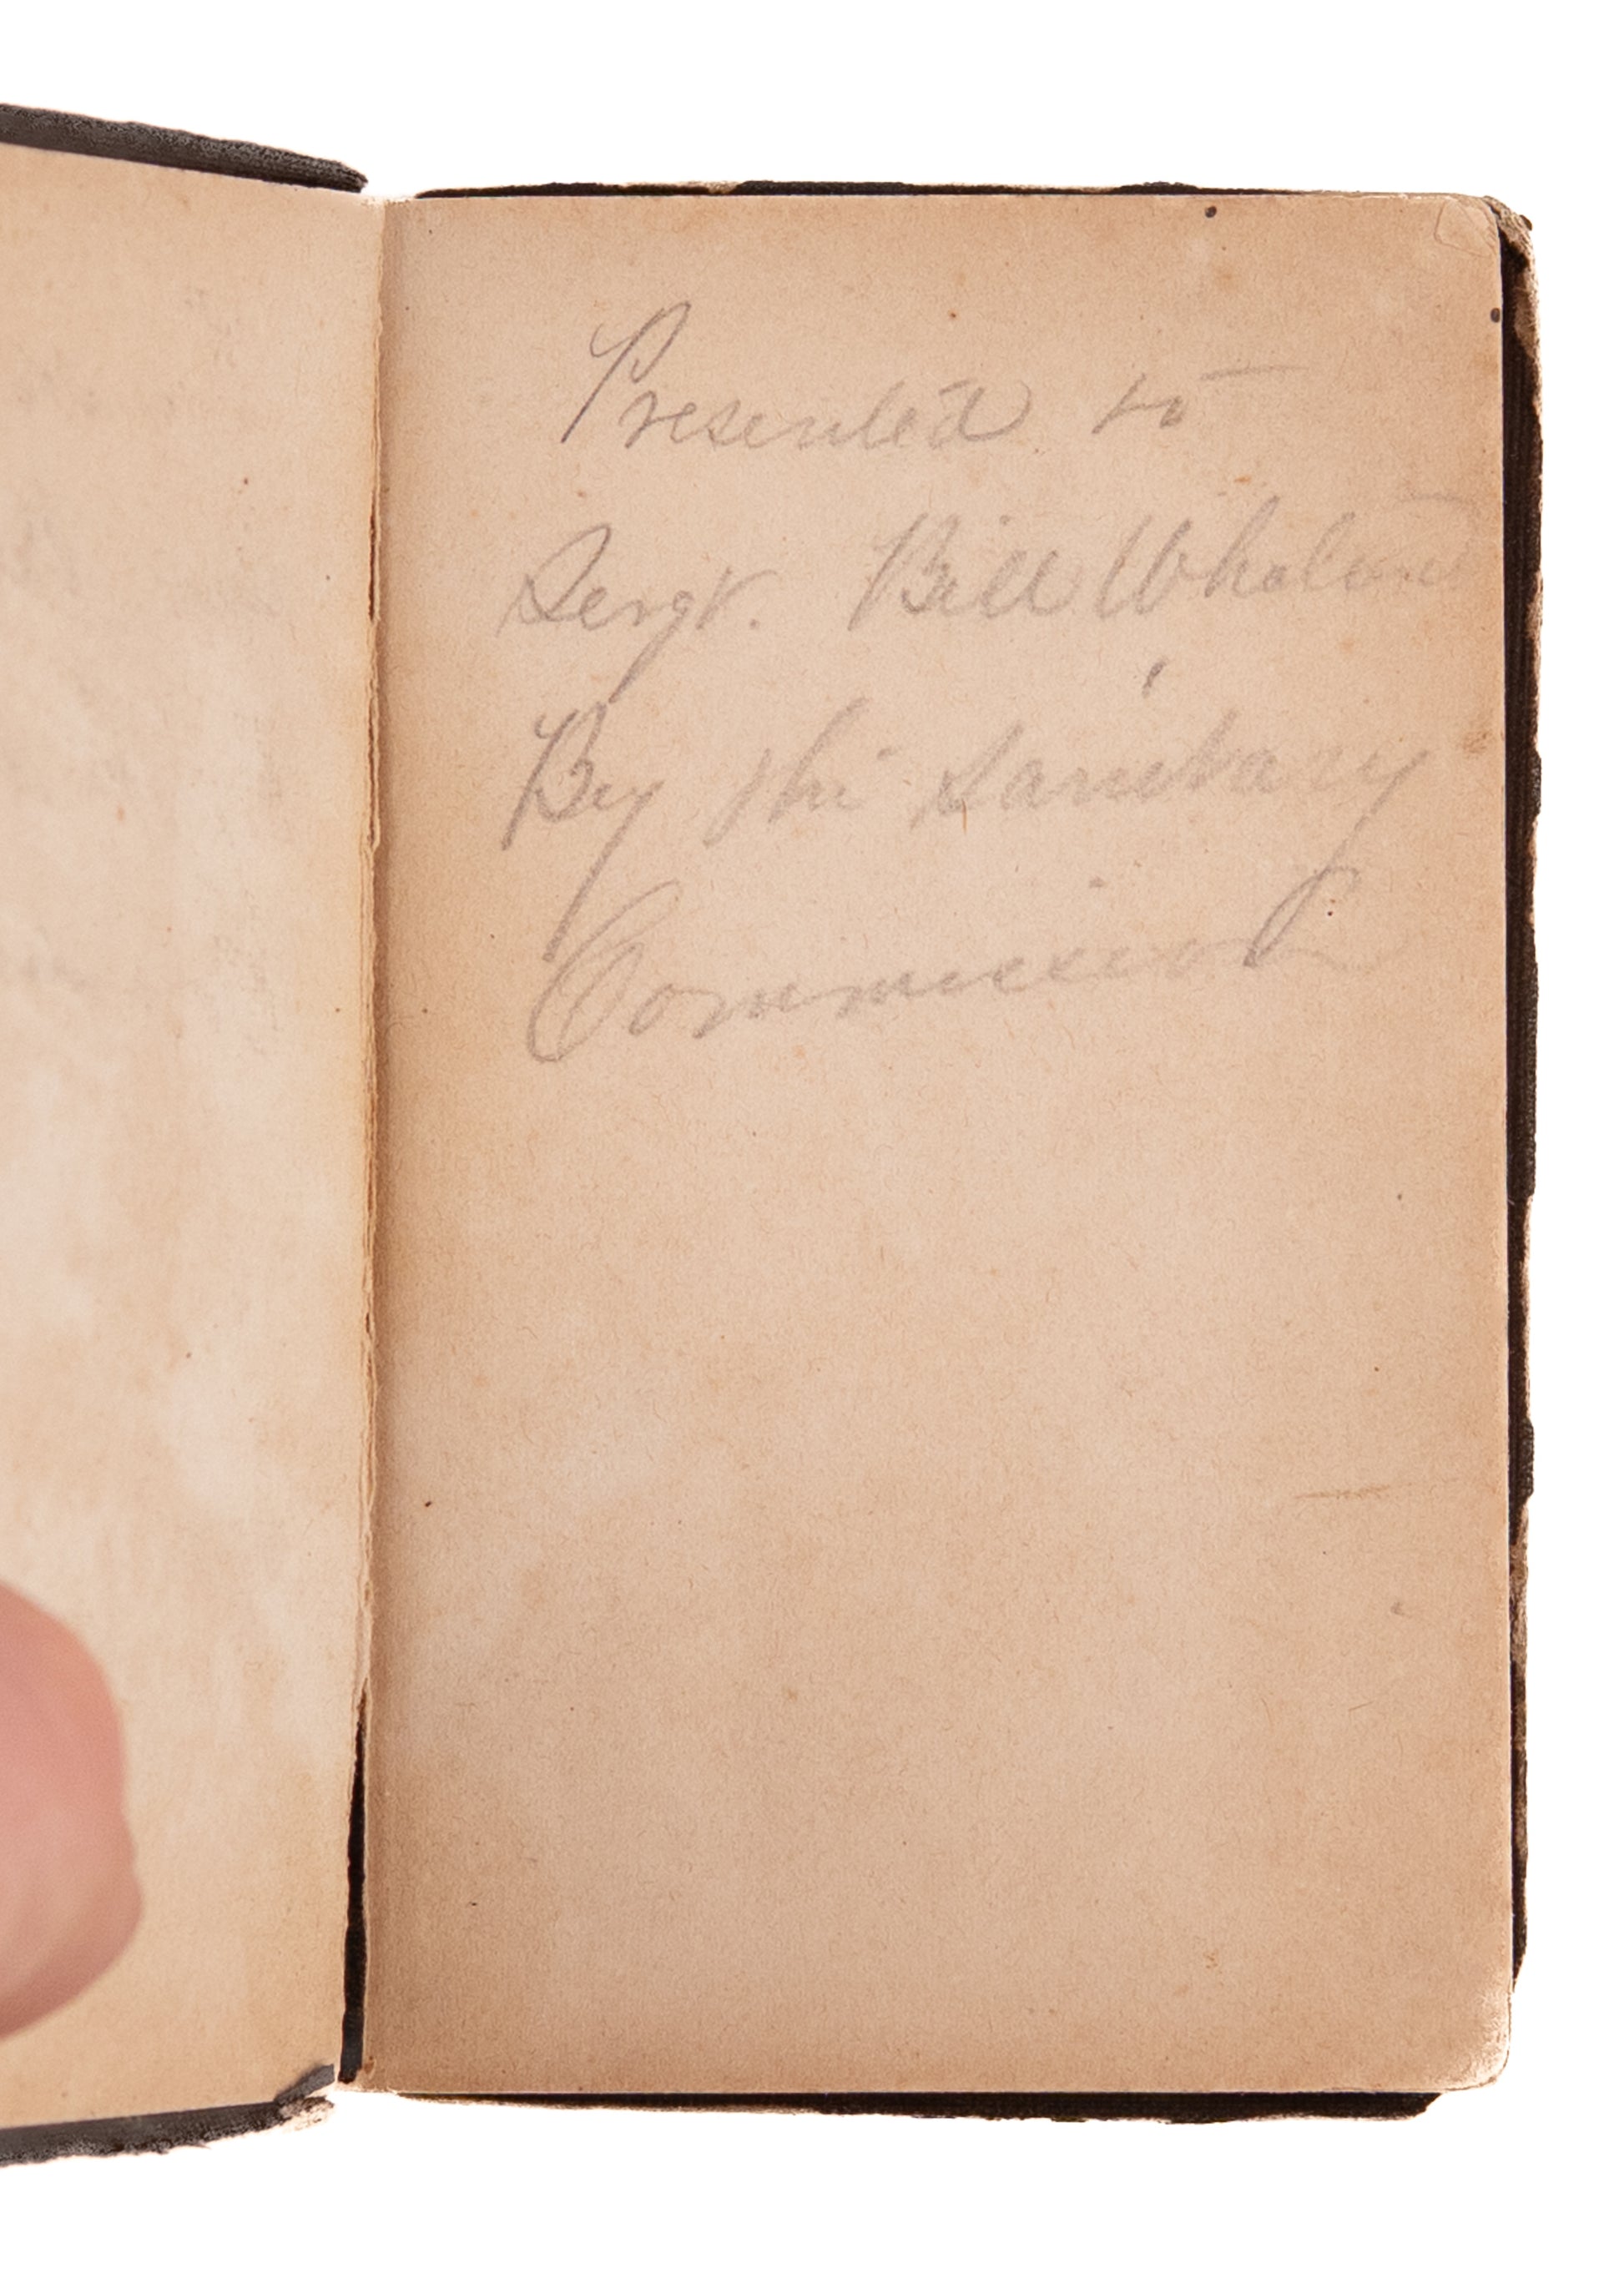 Presented to
Sergt. Bill
By the Sanitary
Commission